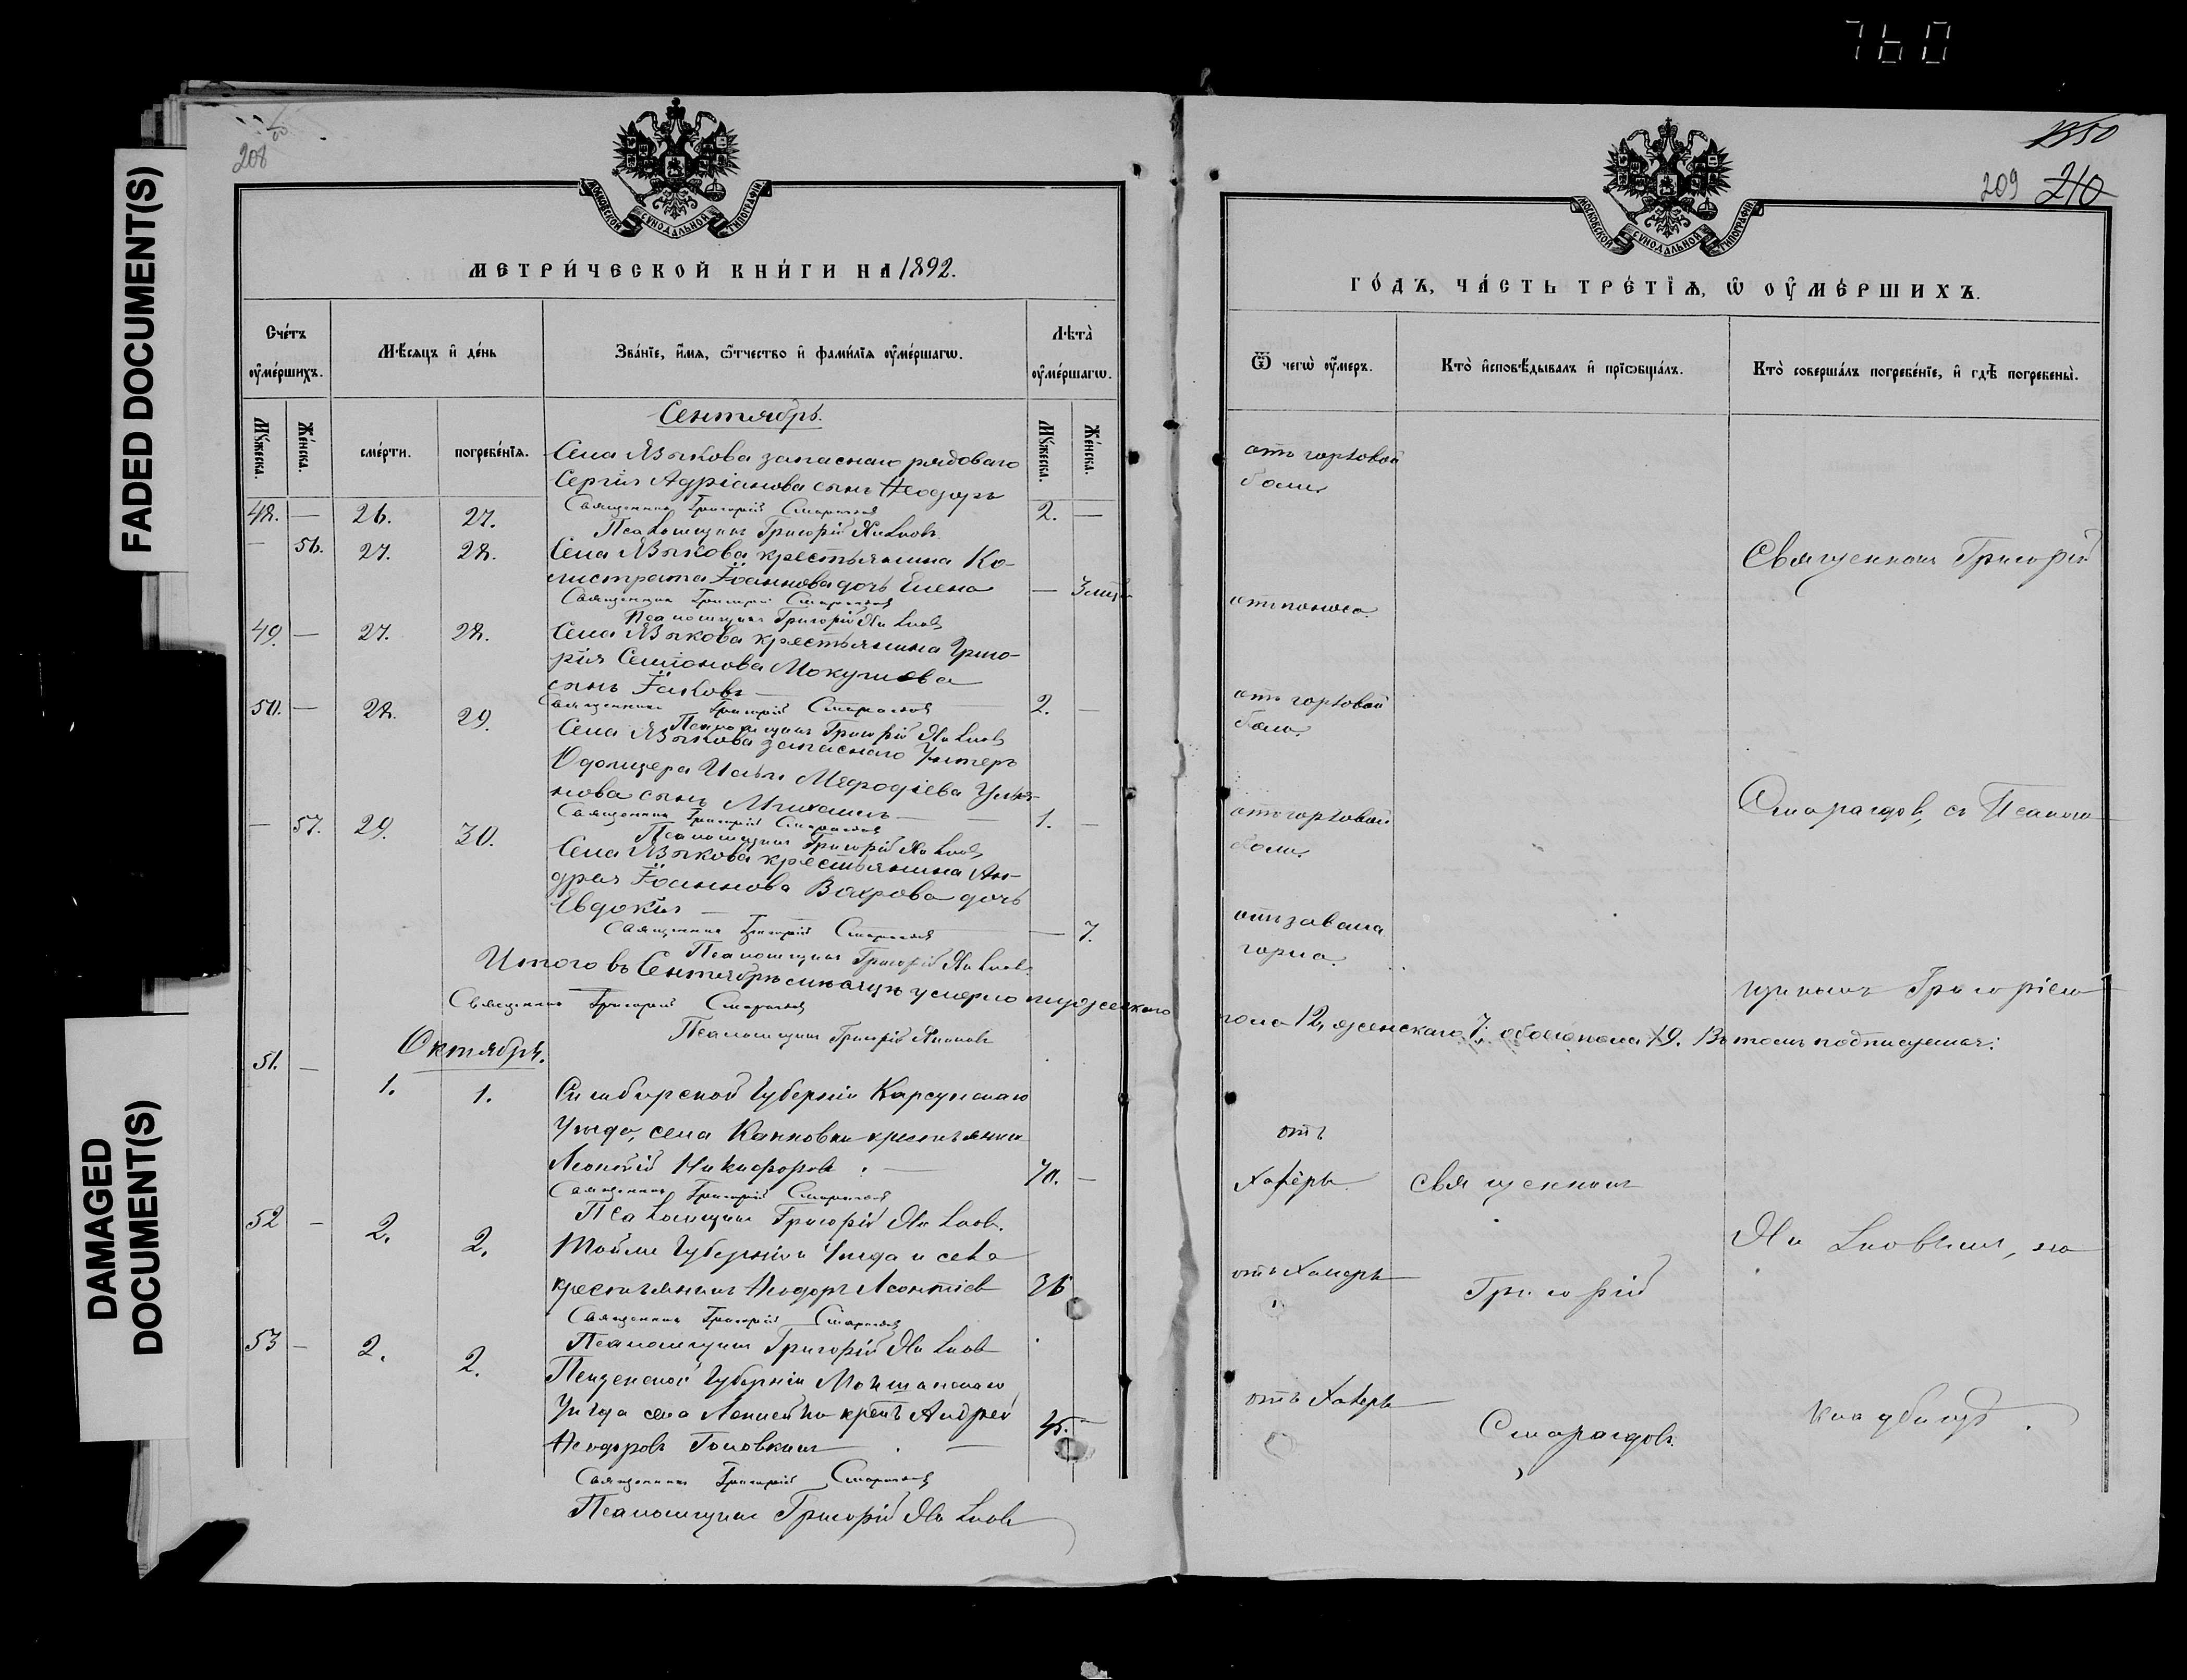 760
FADED DOCUMENT(S)
DAMAGED
DOCUMENT(S)
208
МОСКОВСКОЙ СѴНОДАЛЬНОЙ ТИПОГРАФІИ
МЕТРИ́ЧЕСКОЙ КНИ́ГИ НА 1892.
Сче́тъ ᲂу҆ме́ршихъ.
Мѣ́сяцъ и҆ де́нь
Зва́нїе, и҆́мѧ, ѻ҆́тчество и҆ фами́лїѧ ᲂу҆ме́ршагѡ.
Лѣта̀ ᲂу҆ме́ршагѡ.
Мꙋ́жеска.
Же́нска.
сме́рти.
погребе́нїѧ.
Мꙋ́жеска.
Же́нска.
Сентябрь.
Села Языкова запаснаго рядоваго
Сергія Адріанова сынъ Ѳеодоръ
48. — 26. 27. 2. —
Священникъ Григорій Смарагдов
Псаломщикъ Григорій
— 56. 27. 28. Села Языкова крестьянина Ка-
листрата Іоаннова дочь Елена
— 3 мѣс
Священникъ Григорій Смарагдов
Псаломщикъ Григорій
49. — 27. 28. Села Языкова крестьянина Григо-
рія Симіонова
сынъ Іаковъ — 2. —
Священникъ Григорій Смарагдов
Псаломщикъ Григорій
50. — 28. 29. Села Языкова запаснаго Унтеръ
Офицера Ильи Меѳодіева
сынъ Михаилъ — 1. —
Священникъ Григорій Смарагдов
Псаломщикъ Григорій
— 57. 29. 30. Села Языкова крестьянина Ан-
дрея Іоаннова Вахрова дочь
Евдокія — — 7.
Священникъ Григорій Смарагдов
Псаломщикъ Григорій
Итого въ Сентябрѣ мѣсяцѣ умерло мужескаго
Священникъ Григорій Смарагдов
Псаломщикъ Григорій
Октябрь.
51. — 1. 1. Симбирской Губерніи Карсунскаго
Уѣзда, села крестьянинъ
Леонтій Никифоровъ. — 70. —
Священникъ Григорій Смарагдов
Псаломщикъ Григорій
52 — 2. 2. Тойже Губерніи Уѣзда и села
крестьянинъ Ѳеодоръ Леонтіев 36
Священникъ Григорій Смарагдов
Псаломщикъ Григорій
53 — 2. 2. Пензенской Губерніи Мокшанскаго
Уѣзда села крест Андрей
Ѳеодоровъ Головкинъ — 45. —
Священникъ Григорій Смарагдов
Псаломщикъ Григорій
1350
209 210
МОСКОВСКОЙ СѴНОДАЛЬНОЙ ТИПОГРАФІИ
ГО́ДЪ, ЧА́СТЬ ТРЕ́ТЇѦ, Ѡ҆ ОУ҆МЕ́РШИХЪ.
Ѿ чегѡ̀ ᲂу҆́меръ.
Кто̀ и҆сповѣ́дывалъ и҆ прїѡбща́лъ.
Кто̀ соверша́лъ погребе́нїе, и҆ гдѣ̀ погребены̀.
отъ горловой
боли
от поноса.
отъ горловой
боли
от горловой
боли.
отъ завала
горла.
Священникъ Григорій
Смарагдов, съ Псалом-
щикомъ Григоріем
пола 12, женскаго 7; обоего пола 19. Въ томъ подписуемся:
отъ
Холеры
Священникъ
отъ Холеры
Григорій
отъ Холеры
Смарагдовъ.
на
кладбищѣ.